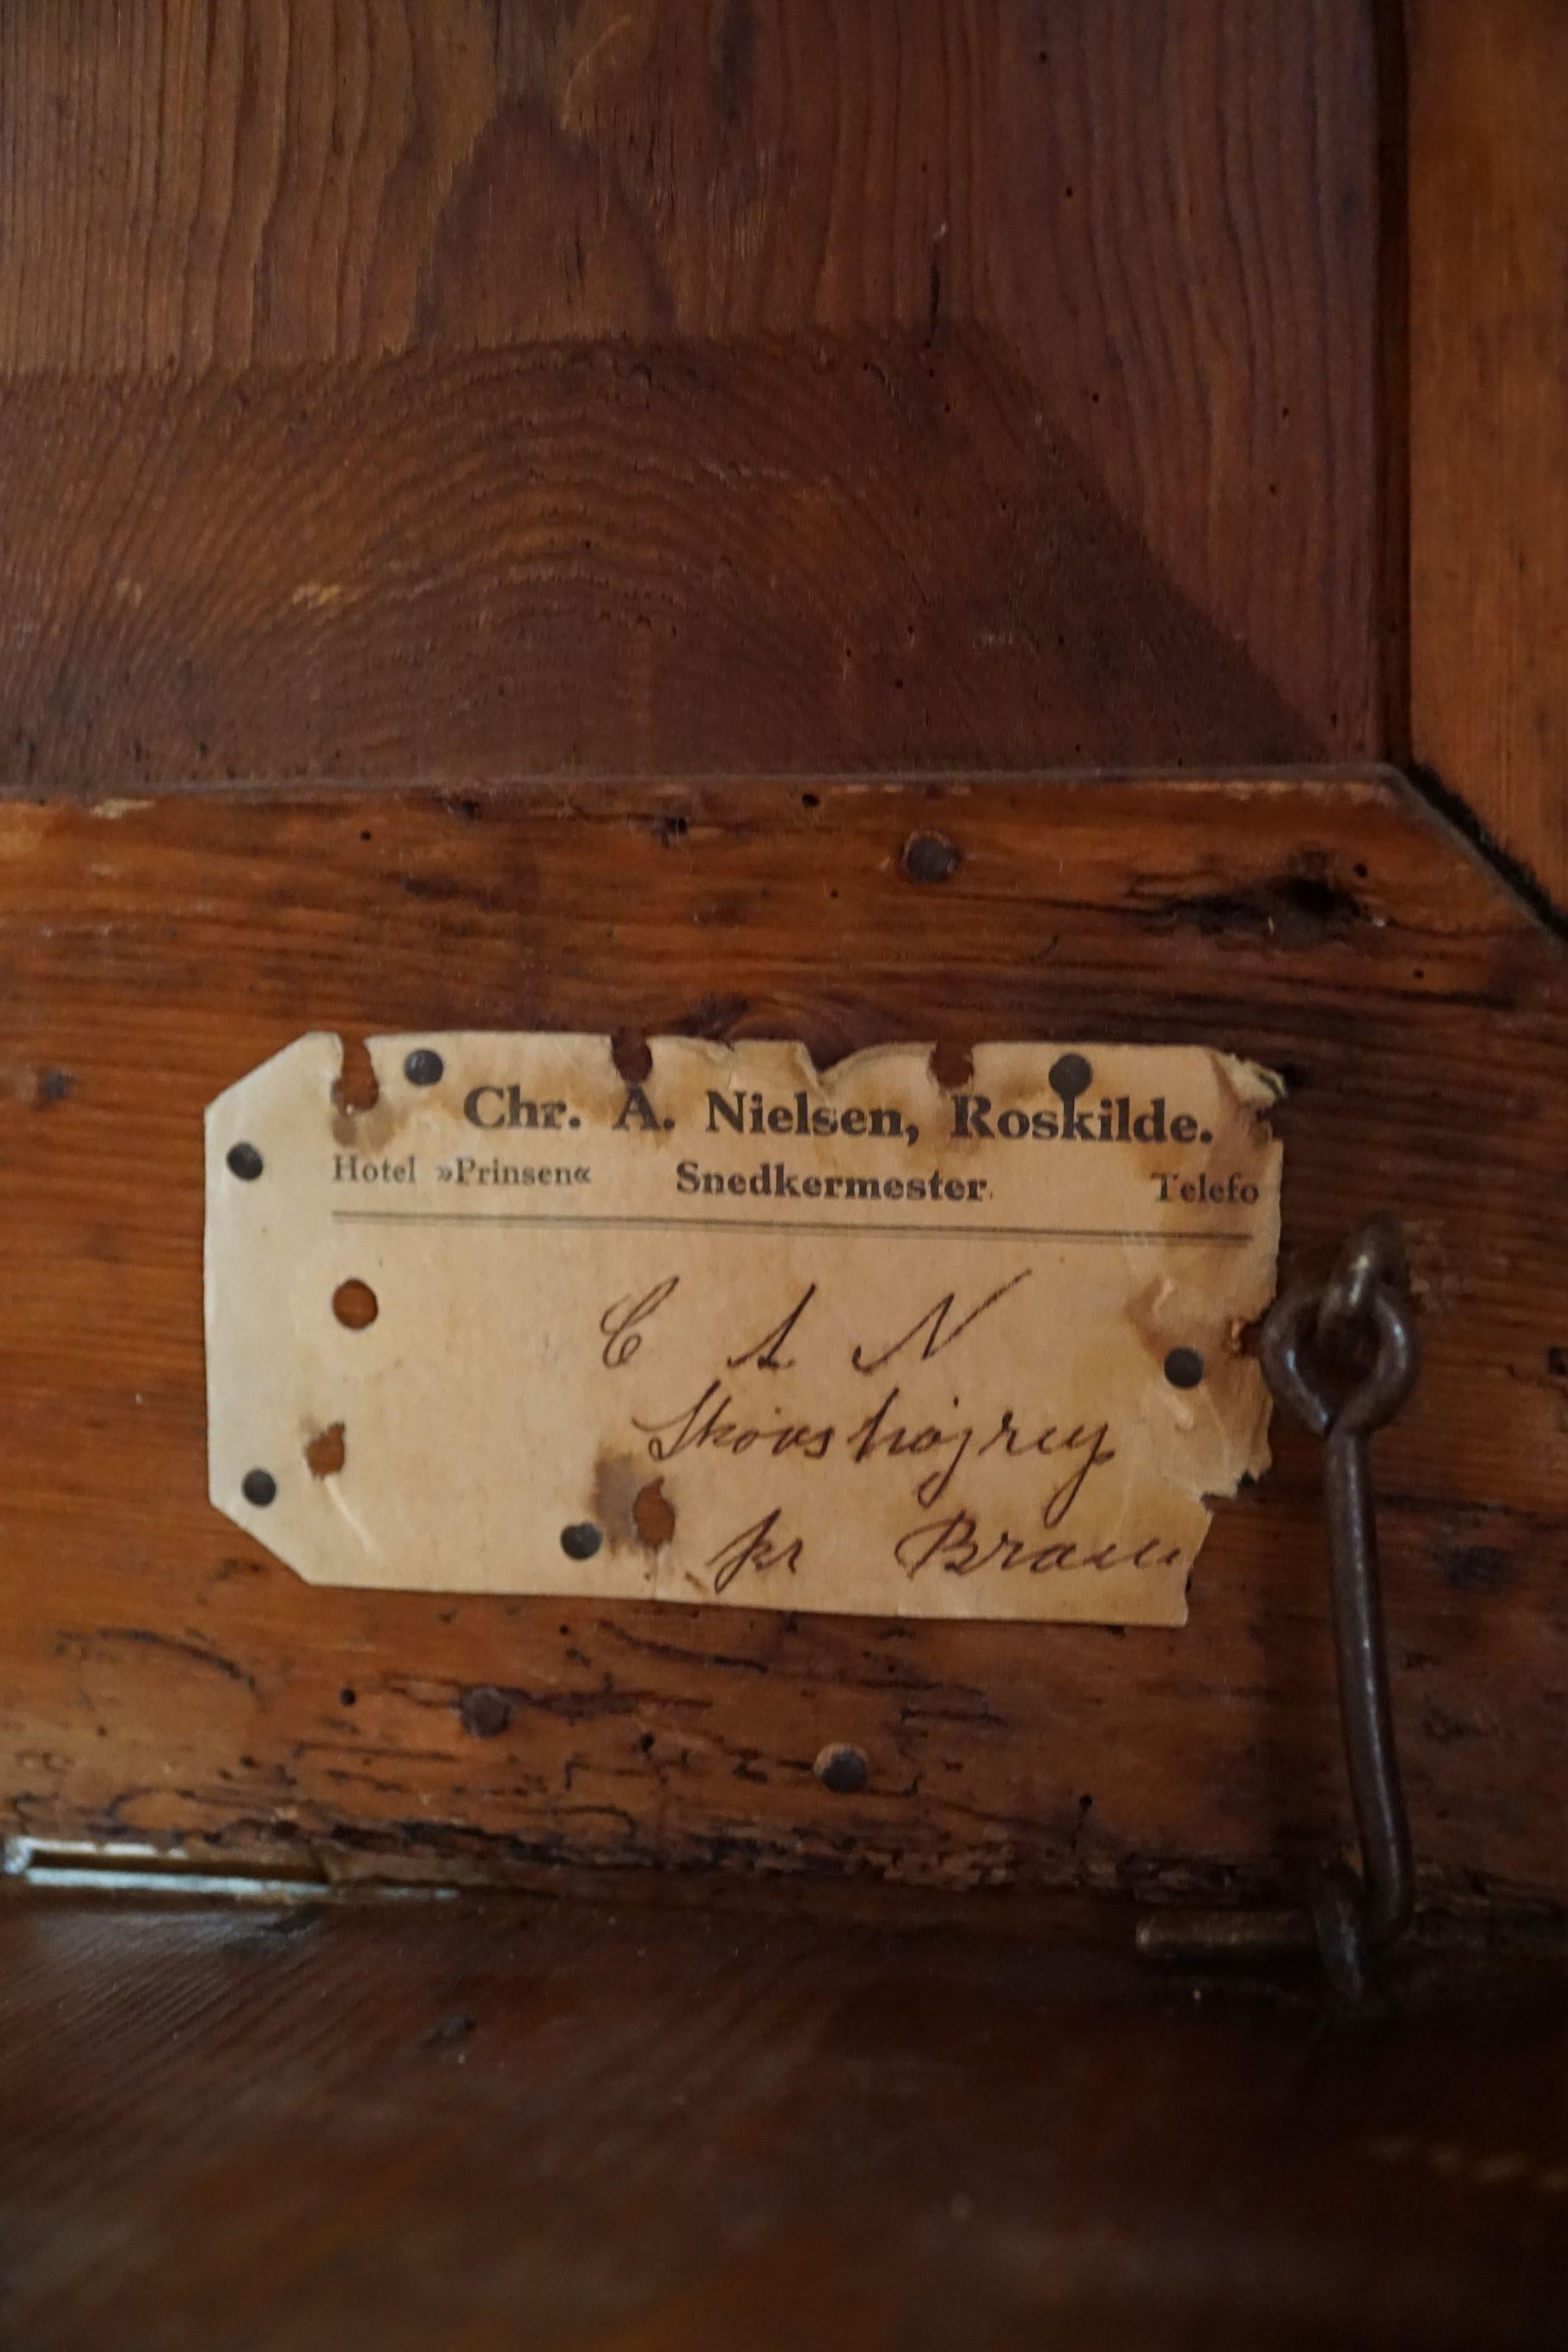 Chr. A. Nielsen, Roskilde.
Hotel »Prinsen« Snedkermester. Telefo
C A N
pr